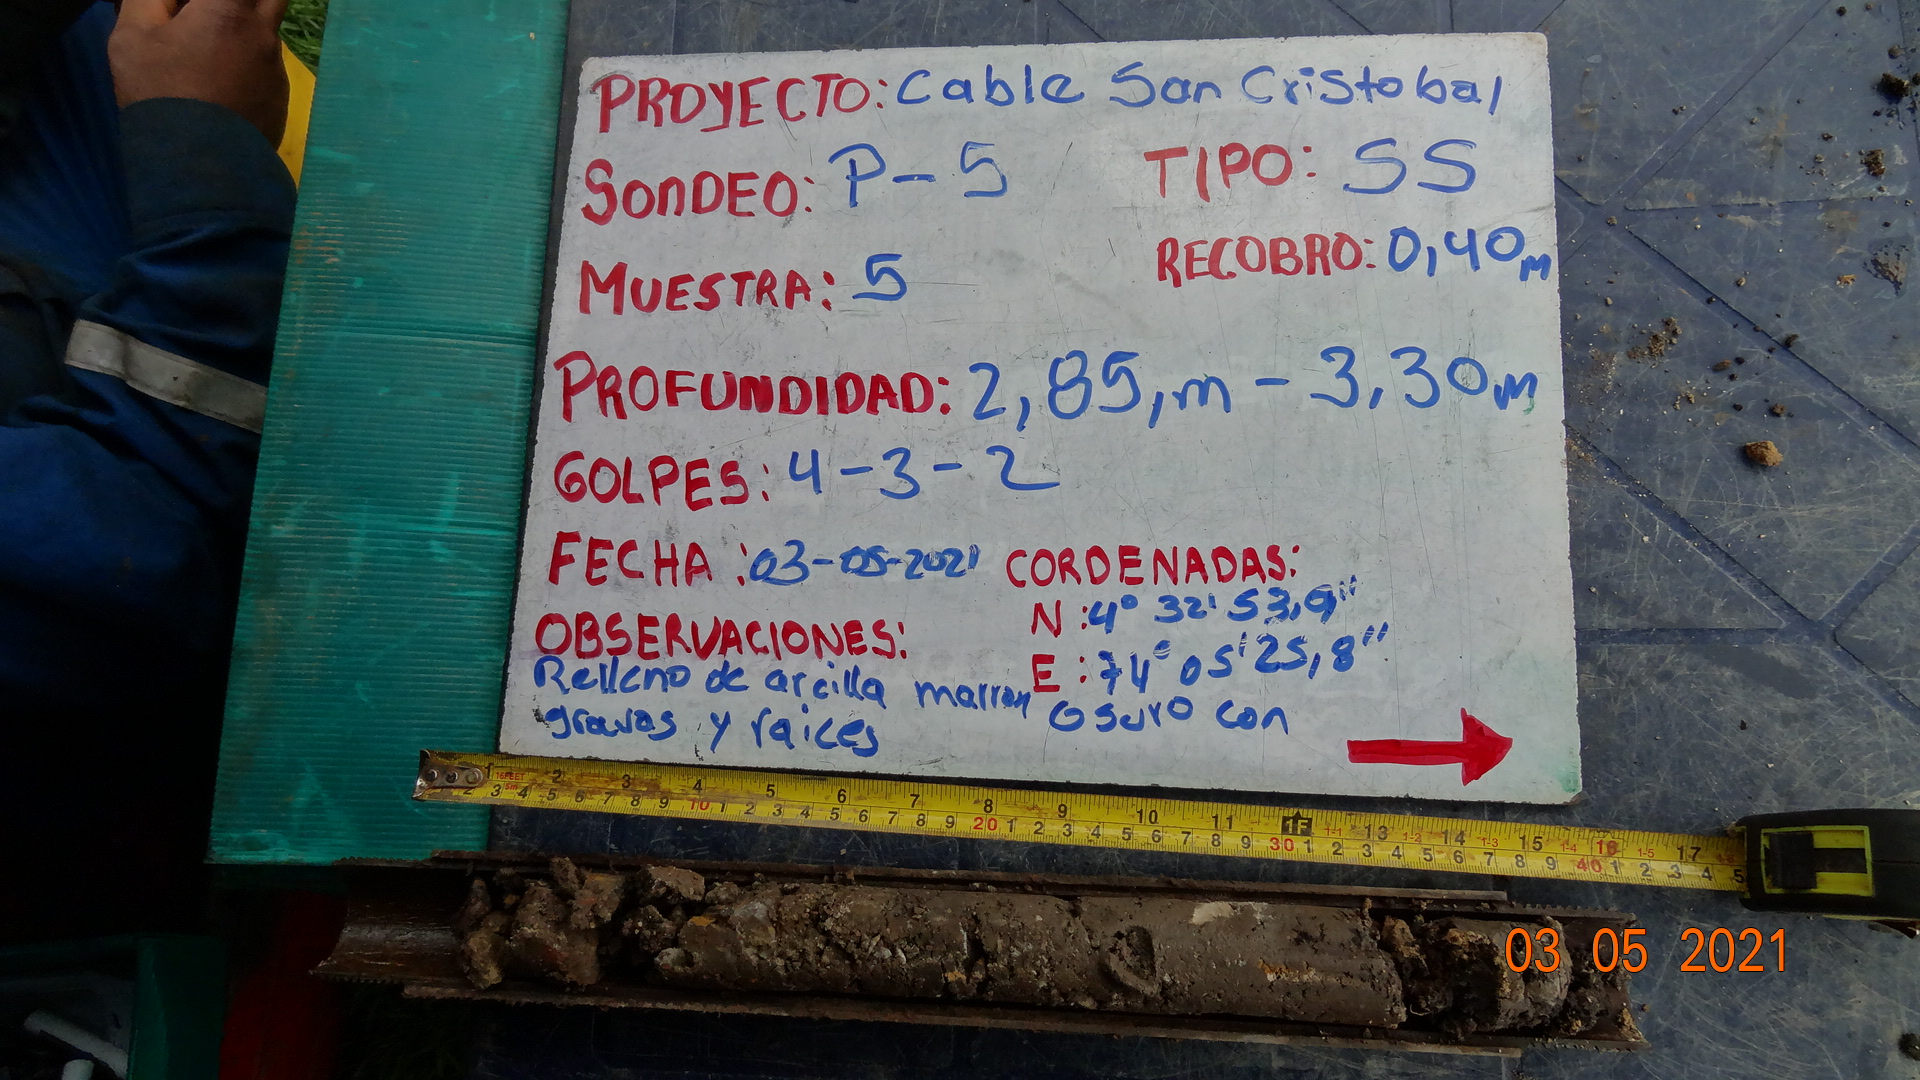 PROYECTO: Cable San Cristobal
SONDEO: P-5 TIPO: SS
MUESTRA: 5 RECOBRO: 0,40m
PROFUNDIDAD: 2,85,m - 3,30m
GOLPES: 4-3-2
FECHA: 03-05-2021 CORDENADAS:
N: 4° 32' 53,9"
OBSERVACIONES: E: 74° 05' 25,8"
Relleno de arcilla marron osuro con
gravas y raices
1 2 3 4 5 6 7 8 9 10 11 1F 13 14 15 16 17
16FEET 5m
2 3 4 5 6 7 8 9 10 1 2 3 4 5 6 7 8 9 20 1 2 3 4 5 6 7 8 9 30 1 2 3 4 5 6 7 8 9 40 1 2 3 4 5
03 05 2021